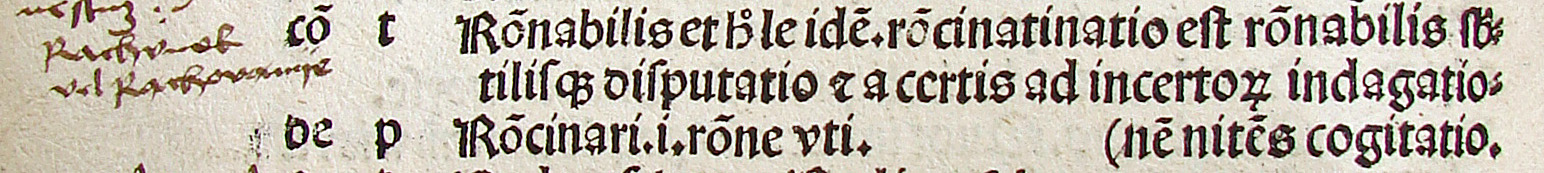 Rachunek
vel Rachovanye
cō t Rōnabilis et hͦ le idē. rōcinatinatio est rōnabilis sb⸗
tilisqꝫ disputatio ⁊ a certis ad incertoꝝ indagatio⸗
de p Rōcinari .i. rōne vti. (nē nitēs cogitatio.